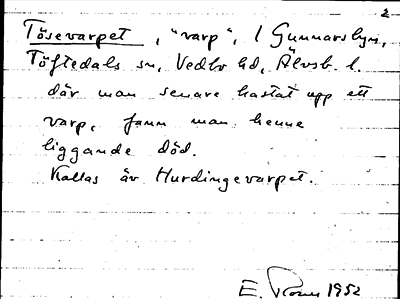 2
Tösevarpet, "varp", i Gunnarsbyn,
Töftedals sn, Vedbo hd, Älvsb. l.
där man senare kastat upp ett
varp, fann man henne
liggande död.
Kallas äv Hurdingevarpet.
E. 1952